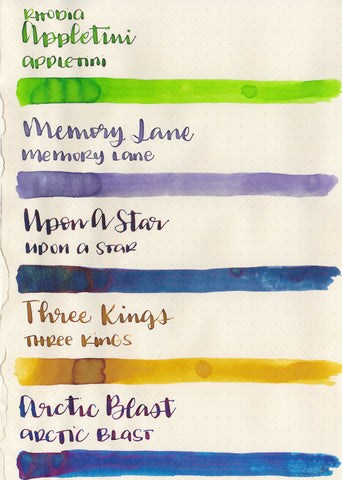 RHODIA
Appletini
APPLETINI
Memory Lane
MEMORY LANE
Upon A Star
UPON A STAR
Three Kings
THREE KINGS
Arctic Blast
ARCTIC BLAST